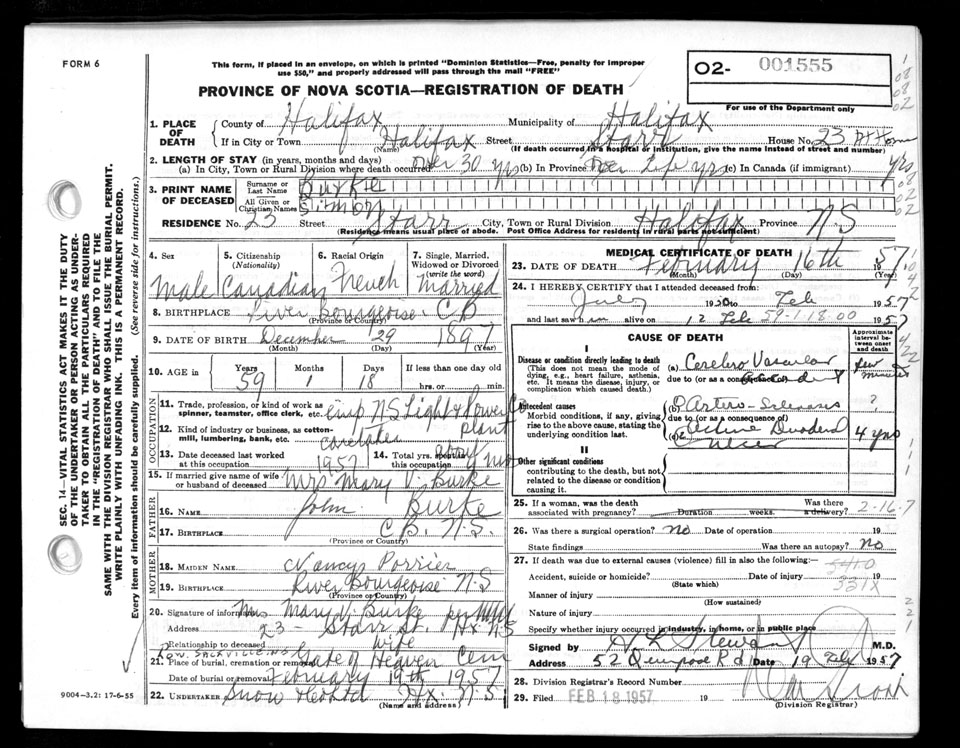 FORM 6
This form, if placed in an envelope, on which is printed "Dominion Statistics—Free, penalty for improper
use $50," and properly addressed will pass through the mail "FREE"
02- 001555
PROVINCE OF NOVA SCOTIA—REGISTRATION OF DEATH
For use of the Department only
1. PLACE OF DEATH
County of Halifax Municipality of Halifax
If in City or Town Halifax Street Starr House No. 23 At Home
(Name) (If death occurred in a hospital or institution, give the name instead of street and number)
2. LENGTH OF STAY (in years, months and days)
(a) In City, Town or Rural Division where death occurred over 30 yrs (b) In Province Life yrs (c) In Canada (if immigrant) yrs
3. PRINT NAME OF DECEASED
Surname or Last Name Burke
All Given or Christian Names Simon
RESIDENCE No. 23 Street Starr City, Town or Rural Division Halifax Province N S
(Residence means usual place of abode. Post Office Address for residents in rural parts not sufficient)
4. Sex Male
5. Citizenship (Nationality) Canadian
6. Racial Origin French
7. Single, Married, Widowed or Divorced (write the word) Married
8. BIRTHPLACE River Bourgeoise C B
(Province or Country)
9. DATE OF BIRTH December 29 1897
(Month) (Day) (Year)
10. AGE in Years 59 Months 1 Days 18 If less than one day old
hrs. or min.
OCCUPATION
11. Trade, profession, or kind of work as
spinner, teamster, office clerk, etc. emp N S Light & Power Co
12. Kind of industry or business, as cotton-
mill, lumbering, bank, etc. caretaker plant
13. Date deceased last worked
at this occupation 1957
14. Total yrs. spent in
this occupation
15. If married give name of wife
or husband of deceased Mrs Mary V. Burke
FATHER
16. NAME John Burke
17. BIRTHPLACE C B. N.S.
(Province or Country)
MOTHER
18. MAIDEN NAME Nancy Porrier
19. BIRTHPLACE River Bourgeoise N S
(Province or Country)
20. Signature of informant Mrs Mary V. Burke per
Address 23 - Starr St. Hx N S
Relationship to deceased wife
Low. Sackville N S
21. Place of burial, cremation or removal Gate of Heaven Cem
Date of burial or removal February 19th 1957
22. UNDERTAKER Snow & Co Ltd Hx. N. S.
(Name and address)
9004-3.2: 17-6-55
SEC. 14—VITAL STATISTICS ACT MAKES IT THE DUTY
OF THE UNDERTAKER OR PERSON ACTING AS UNDER-
TAKER TO OBTAIN ALL THE PARTICULARS REQUIRED
IN THE "REGISTRATION OF DEATH" AND TO FILE THE
SAME WITH THE DIVISION REGISTRAR WHO SHALL ISSUE THE BURIAL PERMIT.
WRITE PLAINLY WITH UNFADING INK. THIS IS A PERMANENT RECORD.
Every item of information should be carefully supplied. (See reverse side for instructions.)
MEDICAL CERTIFICATE OF DEATH
23. DATE OF DEATH February 16th 1957
(Month) (Day) (Year)
24. I HEREBY CERTIFY that I attended deceased from
July 1950 to Feb 1957
and last saw him alive on 12 Feb 1957
59-1-18.00
CAUSE OF DEATH
Approximate interval between onset and death
I
Disease or condition directly leading to death
(This does not mean the mode of
dying, e.g., heart failure, asthenia,
etc. It means the disease, injury, or
complication which caused death.)
(a) Cerebro Vascular
due to (or as a consequence of) Accident
few minutes
Antecedent causes
Morbid conditions, if any, giving
rise to the above cause, stating the
underlying condition last.
(b) Artero-Sclerosis ?
due to (or as a consequence of)
(c) Active Duodenal Ulcer 4 yrs
II
Other significant conditions
contributing to the death, but not
related to the disease or condition
causing it.
25. If a woman, was the death
associated with pregnancy? Duration weeks. Was there a delivery? 2-16-7
26. Was there a surgical operation? No Date of operation 19
State findings Was there an autopsy? No
27. If death was due to external causes (violence) fill in also the following:—
5410
Accident, suicide or homicide? Date of injury 19
(State which)
331X
Manner of injury
(How sustained)
Nature of injury
Specify whether injury occurred in industry, in home, or in public place
Signed by M.D.
Address 52 Quinpool Rd Date 19 Feb 1957
28. Division Registrar's Record Number
29. Filed FEB 18 1957 19
(Division Registrar)